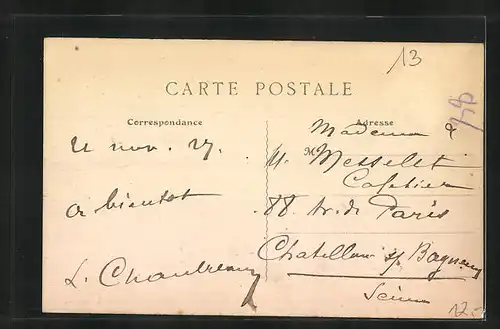 13
CARTE POSTALE
Correspondance
Adresse
nov. 27.
a bientot
L.
M
M. Messelet
Cafetier
88 Av. de Paris
Chatillon s/ Bagneux
Seine
12.-